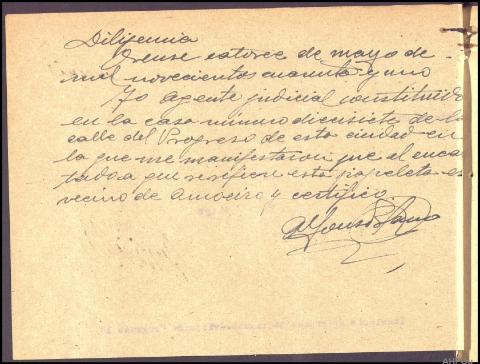 Diligencia
Orense catorce de mayo de
mil novecientos cuarenta y uno
Yo agente judicial constituido
en la casa número diecisiete de la
calle del Progreso de esta ciudad en
la que me manifestaron que el encar
tado a que se refiere esta papeleta es
vecino de Amoeiro y certifico.
Alfonso